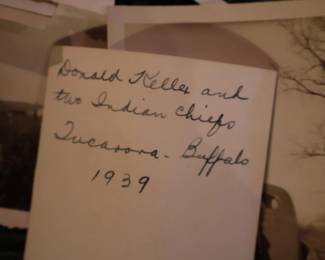 Donald Keller and
two Indian Chiefs
Tucarora - Buffalo
1939